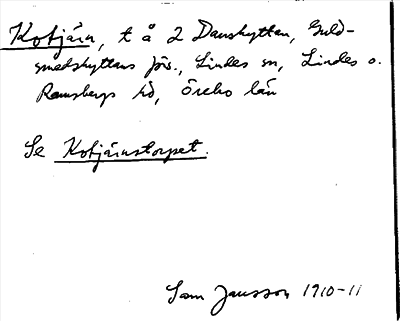 Kotjärn, t å 2 Danshyttan, Guld-
smedshyttans förs., Lindes sn, Lindes o.
Ramsbergs hd, Örebro län
Se Kotjärnstorpet.
Sam Jansson 1910-11